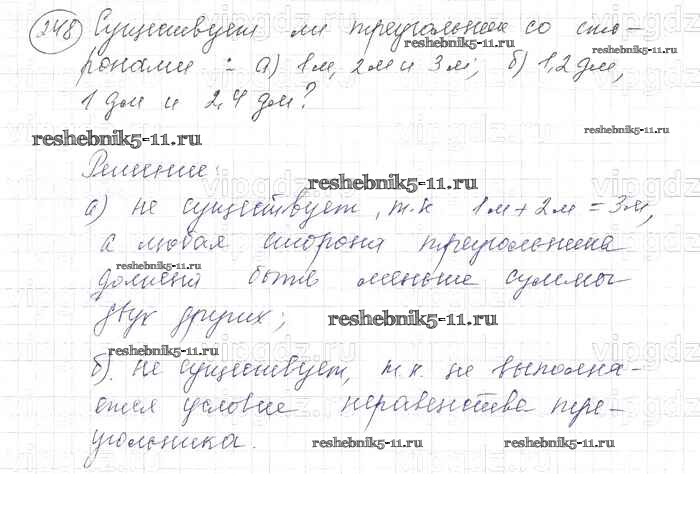 248 Существует ли треугольник со сто-
reshebnik5-11.ru
reshebnik5-11.ru
ронами : а) 1м, 2м и 3м; б) 1,2 дм,
1 дм и 2,4 дм?
reshebnik5-11.ru
reshebnik5-11.ru
Решение:
reshebnik5-11.ru
а) не существует, т.к 1м + 2м = 3м,
а любая сторона треугольника
reshebnik5-11.ru
должна быть меньше суммы
двух других;
reshebnik5-11.ru
reshebnik5-11.ru
б). не существует, т.к. не выполня-
ется условие неравенства тре-
угольника.
reshebnik5-11.ru
reshebnik5-11.ru